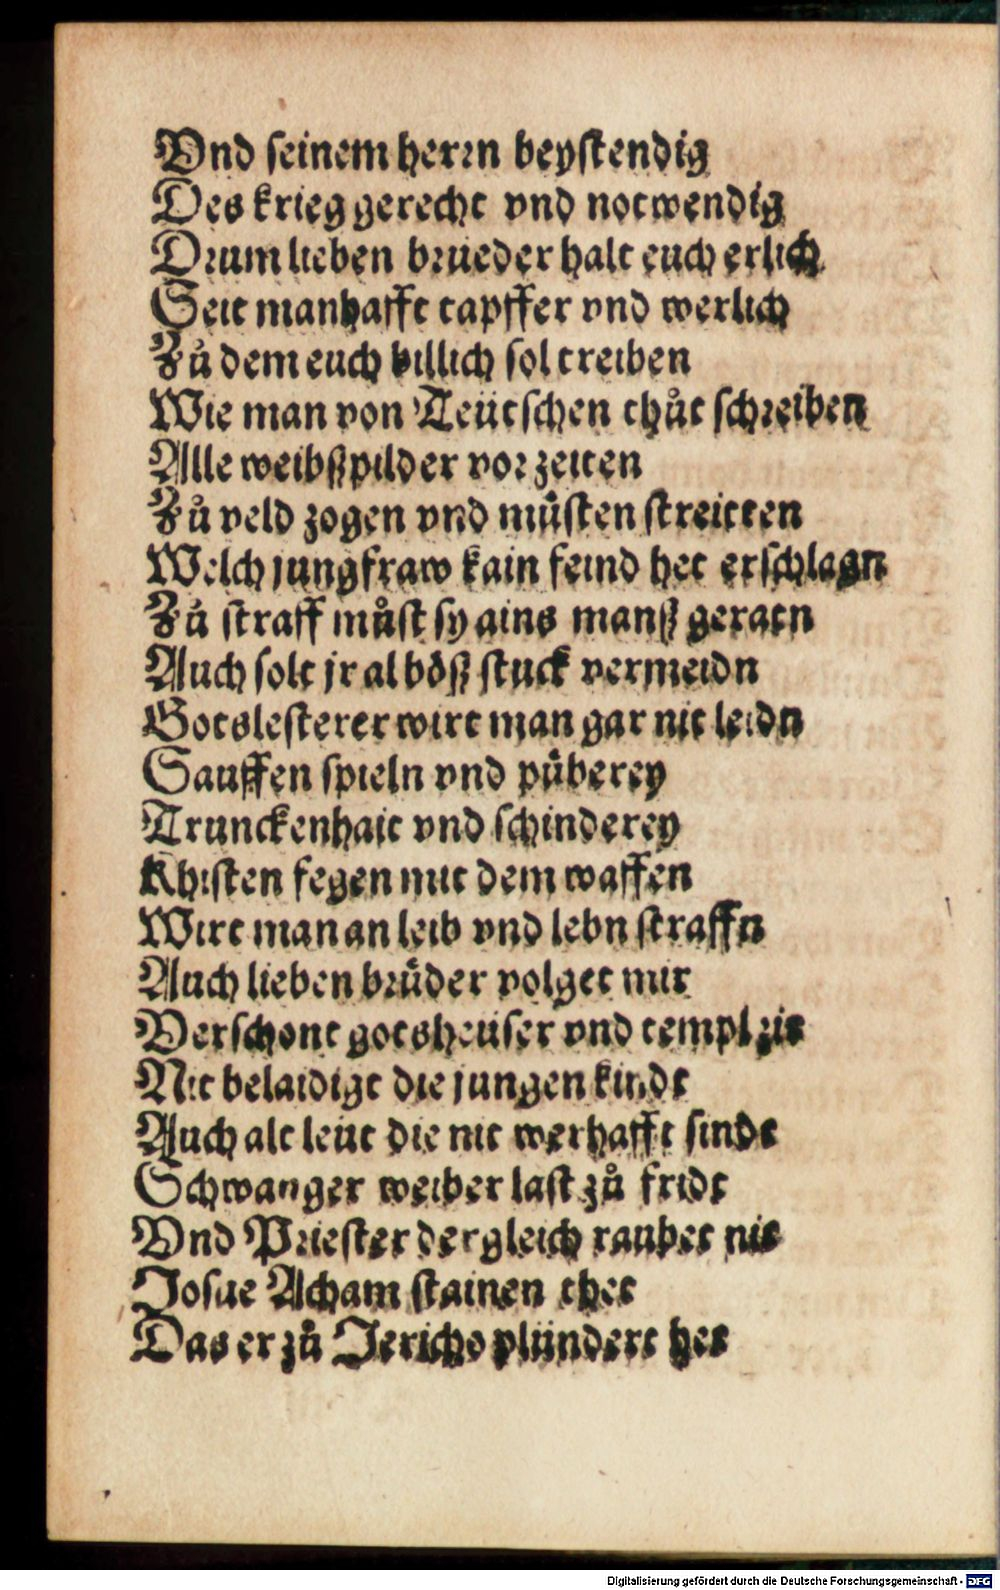 Vnd seinem herrn beystendig
Des krieg gerecht vnd notwendig
Drum lieben brueder halt euch erlich
Seit manhafft tapffer vnd werlich
Zů dem euch billich sol treiben
Wie man von Teütschen thůt schreiben
Alle weibßpilder vor zeiten
Zů veld zogen vnd můsten streitten
Welch jungfraw kain feind het erschlagn
Zů straff můst sy ains manß geratn
Auch solt jr al böß stuck vermeidn
Gotslesterer wirt man gar nit leidn
Sauffen spieln vnd püberey
Trunckenhait vnd schinderey
Khisten fegen mit dem waffen
Wirt man an leib vnd lebn straffn
Auch lieben brůder volget mir
Verschont gotsheuser vnd templ zir
Nit belaidigt die jungen kindt
Auch alt leüt die nit werhafft sindt
Schwanger weiber last zů fridt
Vnd Priester dergleich raubet nit
Josue Acham stainen thet
Das er zů Jericho plündert het
Digitalisierung gefördert durch die Deutsche Forschungsgemeinschaft - DFG